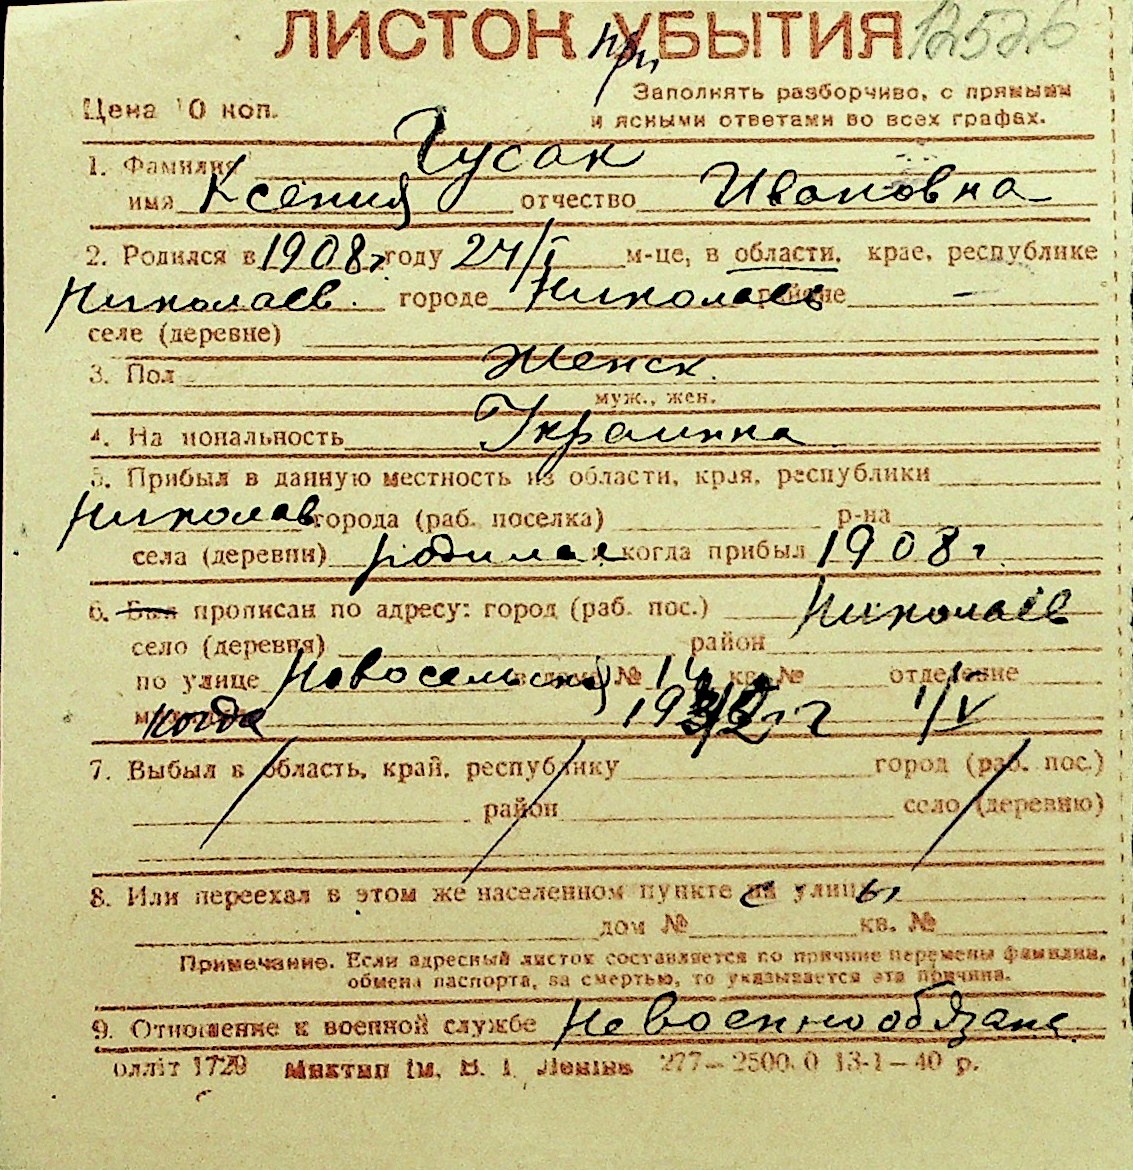 ЛИСТОК при УБЫТИЯ 12526
Цена 10 коп.
Заполнять разборчиво, с прямыми
и ясными ответами во всех графах.
1. Фамилия Гусак
имя Ксения отчество Ивановна
2. Родился в 1908 г. году 24/I м-це, в области, крае, республике
Николаев. городе Николаев районе –
селе (деревне)
3. Пол Женск.
муж., жен.
4. На иональность Украинка
5. Прибыл в данную местность из области, края, республики
Николаев города (раб. поселка) р-на
села (деревни) родилась когда прибыл 1908 г.
6. Был прописан по адресу: город (раб. пос.) Николаев
село (деревня) район
по улице Новосельская № 14 кв. № отделение
когда г. 1/IV
7. Выбыл в область, край, республику город (раб. пос.)
район село (деревню)
8. Или переехал в этом же населенном пункте с улицы
дом № кв. №
Примечание. Если адресный листок составляется по причине перемены фамилии,
обмена паспорта, за смертью, то указывается эта причина.
9. Отношение к военной службе Невоеннообязана
олліт 1729 Миктип ім. В. І. Леніна 277—2500.0 13-1—40 р.